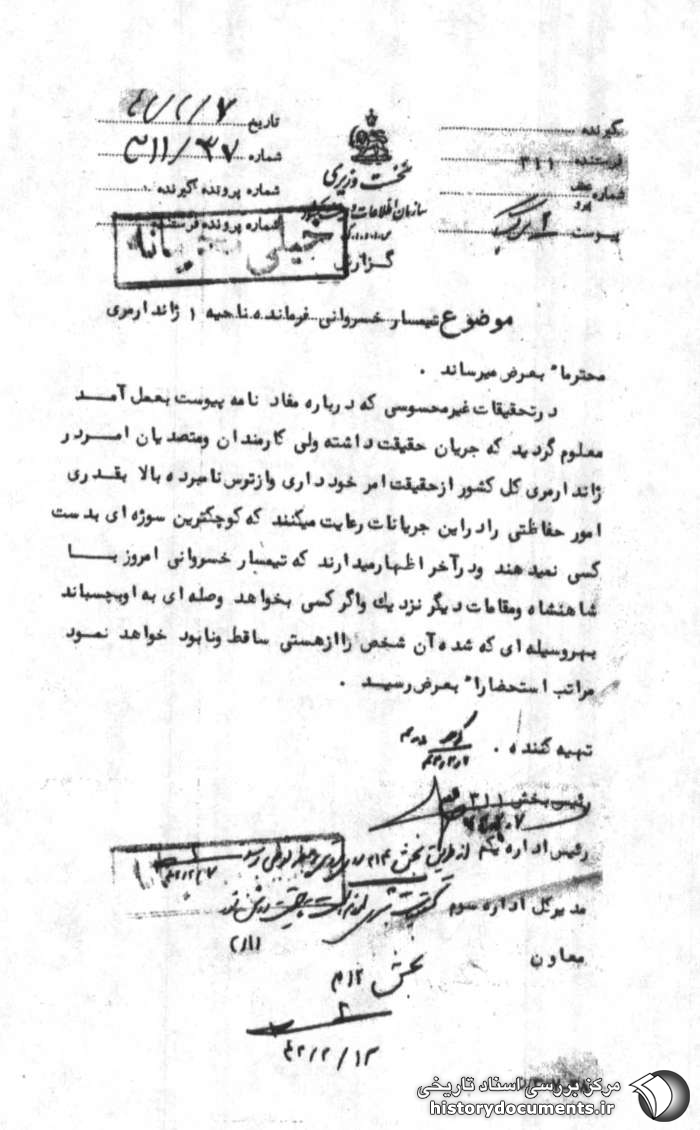 گیرنده
فرستنده ۳۱۱
شماره عطف
پیرو
پیوست ۱ برگ
نخست وزیری
سازمان اطلاعات و امنیت کشور
س.ا.و.ا.ک
گزارش
تاریخ ۴۲/۲/۷
شماره ۳۱۱/۳۷
شماره پرونده گیرنده
شماره پرونده فرستنده
خیلی محرمانه
موضوع تیمسار خسروانی فرمانده ناحیه ۱ ژاندارمری
محترما" بعرض میرساند .
در تحقیقات غیرمحسوسی که درباره مفاد نامه پیوست بعمل آمد
معلوم گردید که جریان حقیقت داشته ولی کارمندان ومتصدیان امر در
ژاندارمری کل کشور از حقیقت امر خودداری وازترس نامبرده بالا بقدری
امور حفاظتی را در این جریانات رعایت میکنند که کوچکترین سوژه ای بدست
کسی نمیدهند ودر آخر اظهارمیدارند که تیمسار خسروانی امروز با
شاهنشاه ومقامات دیگر نزدیك واگر کسی بخواهد وصله ای به اوبچسباند
بهروسیله ای که شده آن شخص را ازهستی ساقط ونابود خواهد نمود
مراتب استحضارا" بعرض رسید .
تهیه کننده .
رئیس بخش ۳۱۱
رئیس اداره یکم
مدیرکل اداره سوم
معاون
بخش ۳۱۲
۴۲/۲/۱۲
مرکز بررسی اسناد تاریخی
historydocuments.ir